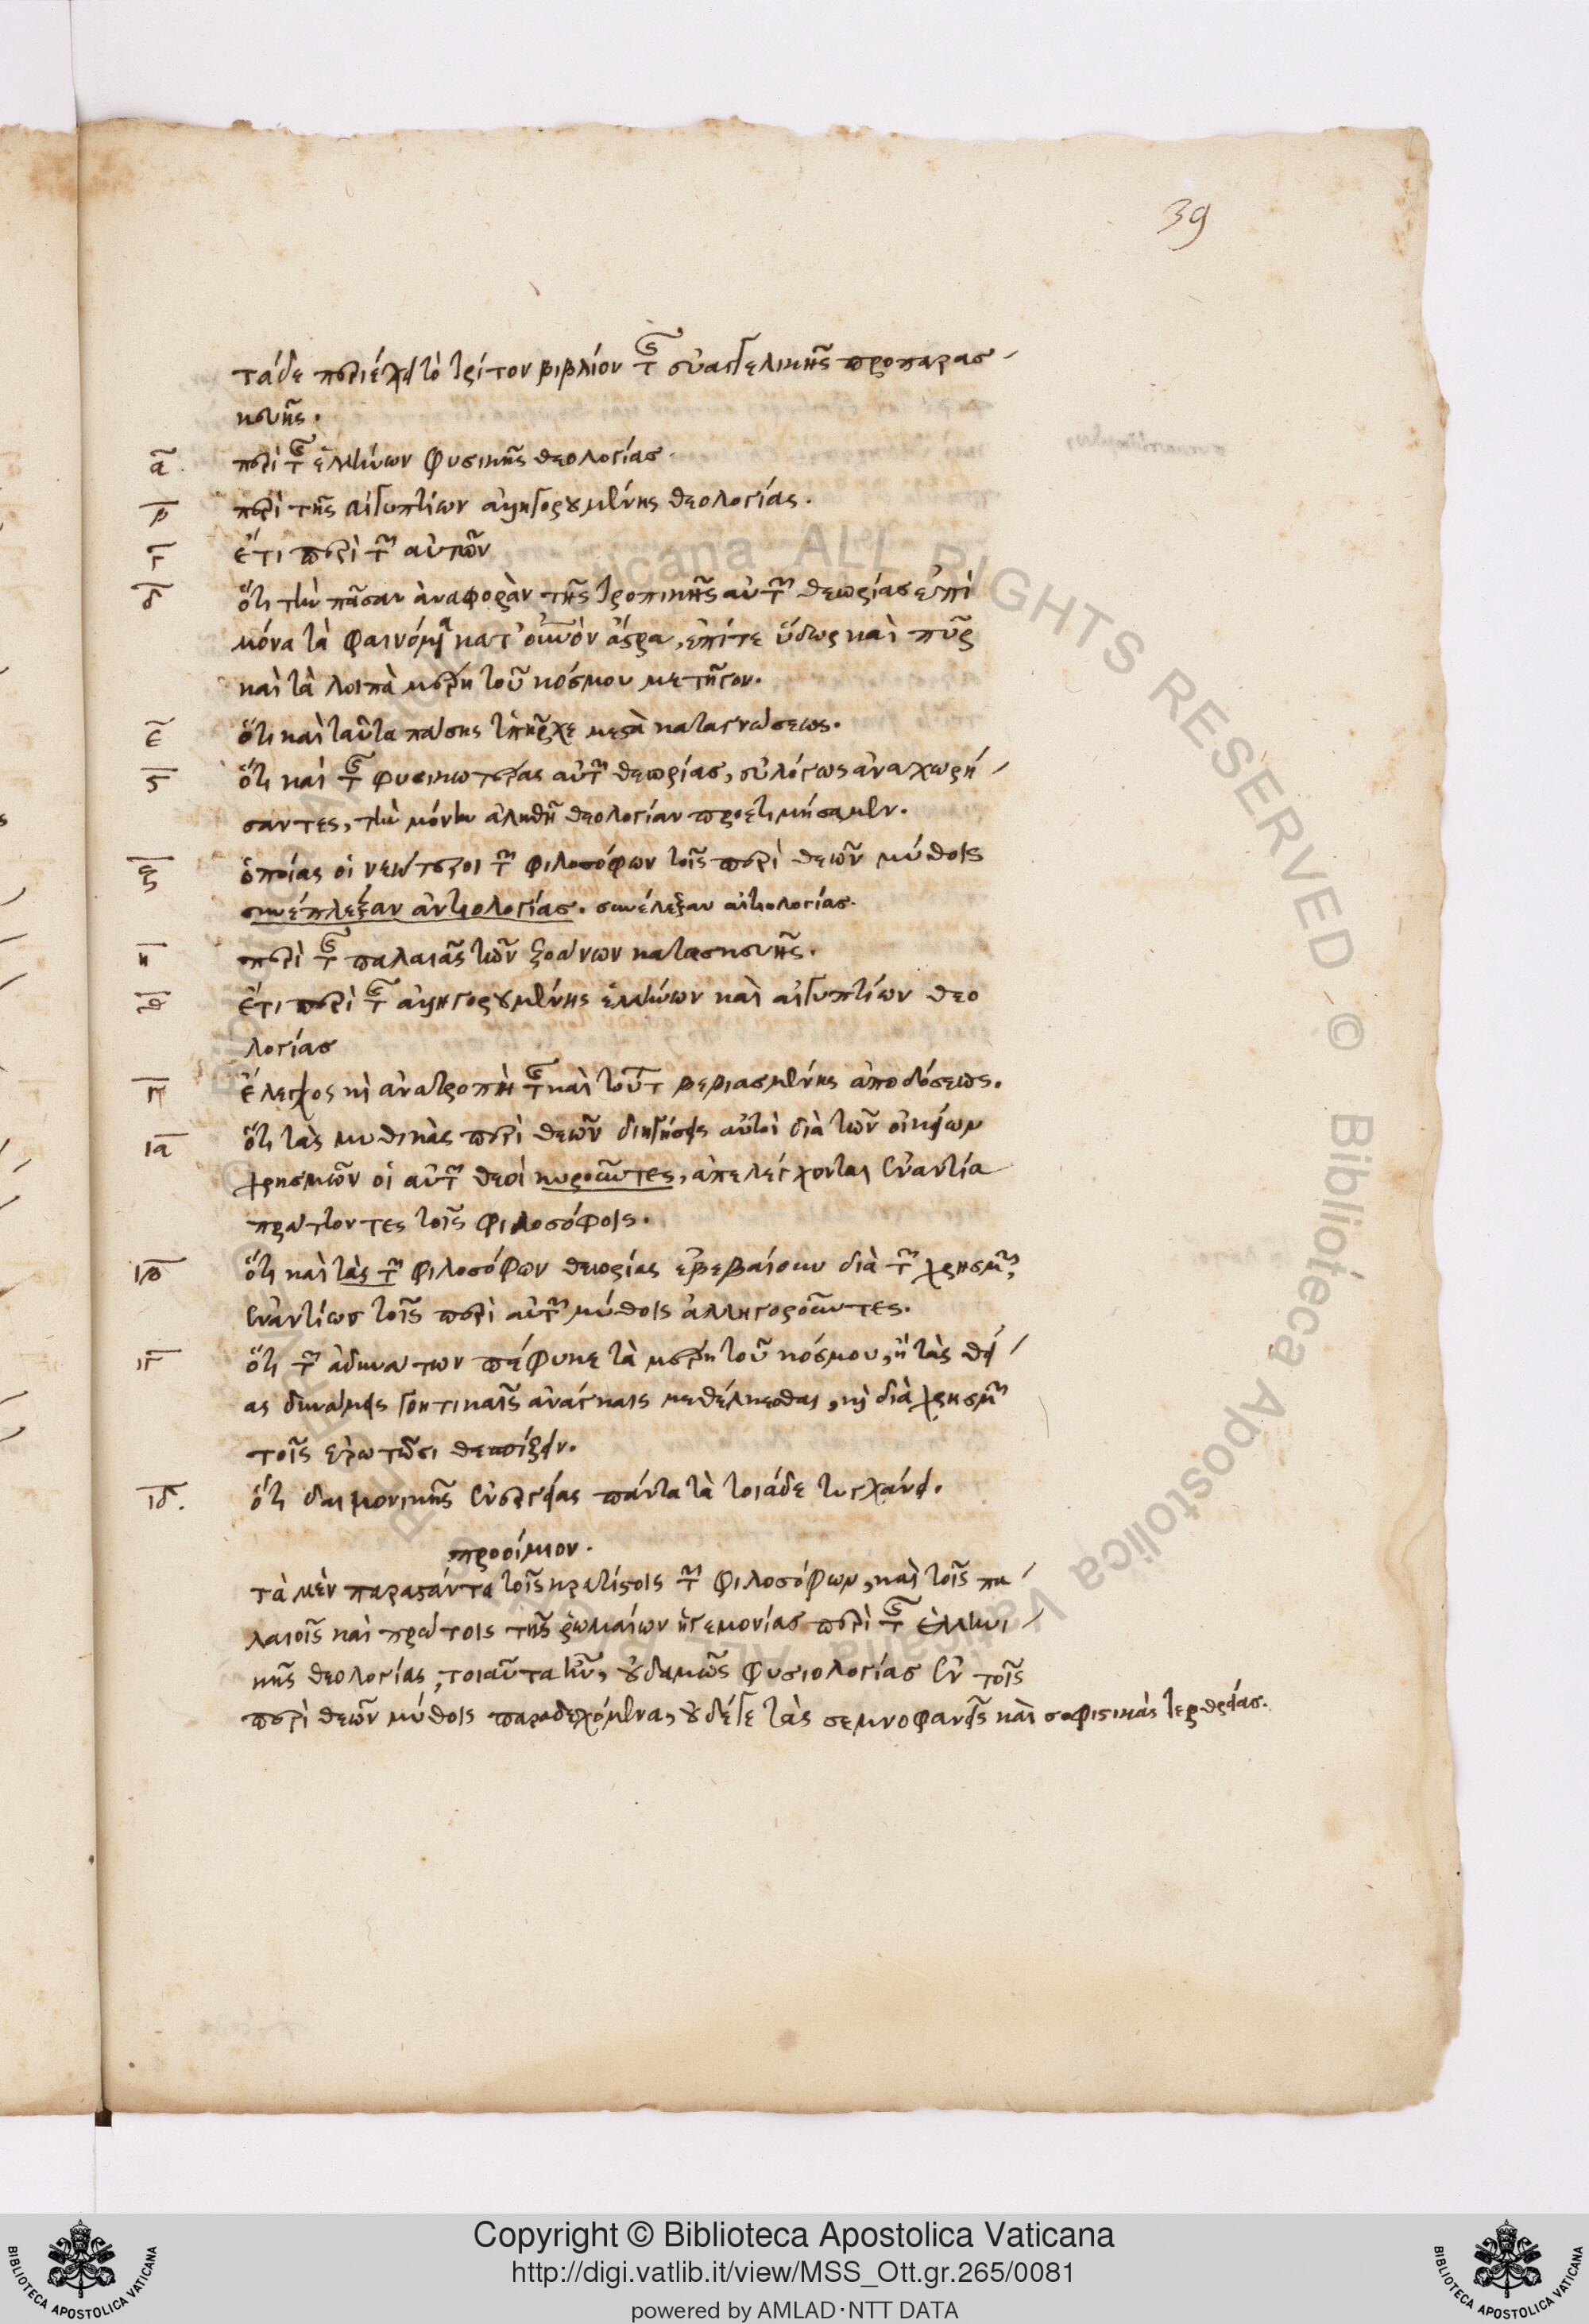 39
τάδε περιέχει τὸ τρίτον βιβλίον τῆς εὐαγγελικῆς προπαρασ
κευῆς.
α περὶ τῆς ἑλλήνων φυσικῆς θεολογίας.
β περὶ τῆς αἰγυπτίων ἀλληγορουμένης θεολογίας.
γ ἔτι περὶ τῶν αὐτῶν
δ ὅτι τὴν πᾶσαν ἀναφορὰν τῆς τροπικῆς αὐτῶν θεωρίας ἐπὶ
μόνα τὰ φαινόμενα κατ' οὐρανὸν ἄστρα, ἐπί τε ὕδωρ καὶ πῦρ
καὶ τὰ λοιπὰ μέρη τοῦ κόσμου μετῆγον.
ε ὅτι καὶ ταῦτα πάσης ὑπῆρχε μεστὰ καταγνώσεως.
ϛ ὅτι καὶ τῆς φυσικωτέρας αὐτῶν θεωρίας, εὐλόγως ἀναχωρή
σαντες, τὴν μόνην ἀληθῆ θεολογίαν προετιμήσαμεν.
ζ ὁποίας οἱ νεώτεροι τῶν φιλοσόφων τοῖς περὶ θεῶν μύθοις
συνέπλεξαν ἀντιολογίας. συνέλεξαν αἰτιολογίας.
η περὶ τῆς παλαιᾶς τῶν ξοάνων κατασκευῆς.
θ ἔτι περὶ τῆς ἀλληγορουμένης ἑλλήνων καὶ αἰγυπτίων θεο
λογίας
ι ἔλεγχος καὶ ἀνατροπὴ τῆς καὶ τούτων βεβιασμένης ἀποδόσεως.
ια ὅτι τὰς μυθικὰς περὶ θεῶν διηγήσεις αὐτοὶ διὰ τῶν οἰκείων
χρησμῶν οἱ αὐτῶν θεοὶ κυροῦντες, ἀπελέγχονται ἐναντία
πράττοντες τοῖς φιλοσόφοις.
ιβ ὅτι καὶ τὰς τῶν φιλοσόφων θεωρίας ἐβεβαίουν διὰ τῶν χρησμῶν,
ἐναντίως τοῖς περὶ αὐτῶν μύθοις ἀλληγοροῦντες.
ιγ ὅτι τῶν ἀδυνάτων πέφυκε τὰ μέρη τοῦ κόσμου, ἢ τὰς θεί
ας δυνάμεις γοητικαῖς ἀνάγκαις μεθέλκεσθαι, καὶ διὰ χρησμῶν
τοῖς ἐρωτῶσι θεσπίζειν.
ιδ. ὅτι δαιμονικῆς ἐνεργείας πάντα τὰ τοιάδε τυγχάνει.
προοίμιον.
τὰ μὲν παραστάντα τοῖς κρατίστοις τῶν φιλοσόφων, καὶ τοῖς πα
λαιοῖς καὶ πρώτοις τῆς ῥωμαίων ἡγεμονίας περὶ τῆς ἑλληνι
κῆς θεολογίας, τοιαῦτα ἦν, οὐδαμῶς φυσιολογίας ἐν τοῖς
περὶ θεῶν μύθοις παραδεχόμενα, οὐδέ γε τὰς σεμνοφανεῖς καὶ σοφιστικὰς τερθρείας.
Copyright © Biblioteca Apostolica Vaticana
http://digi.vatlib.it/view/MSS_Ott.gr.265/0081
powered by AMLAD·NTT DATA